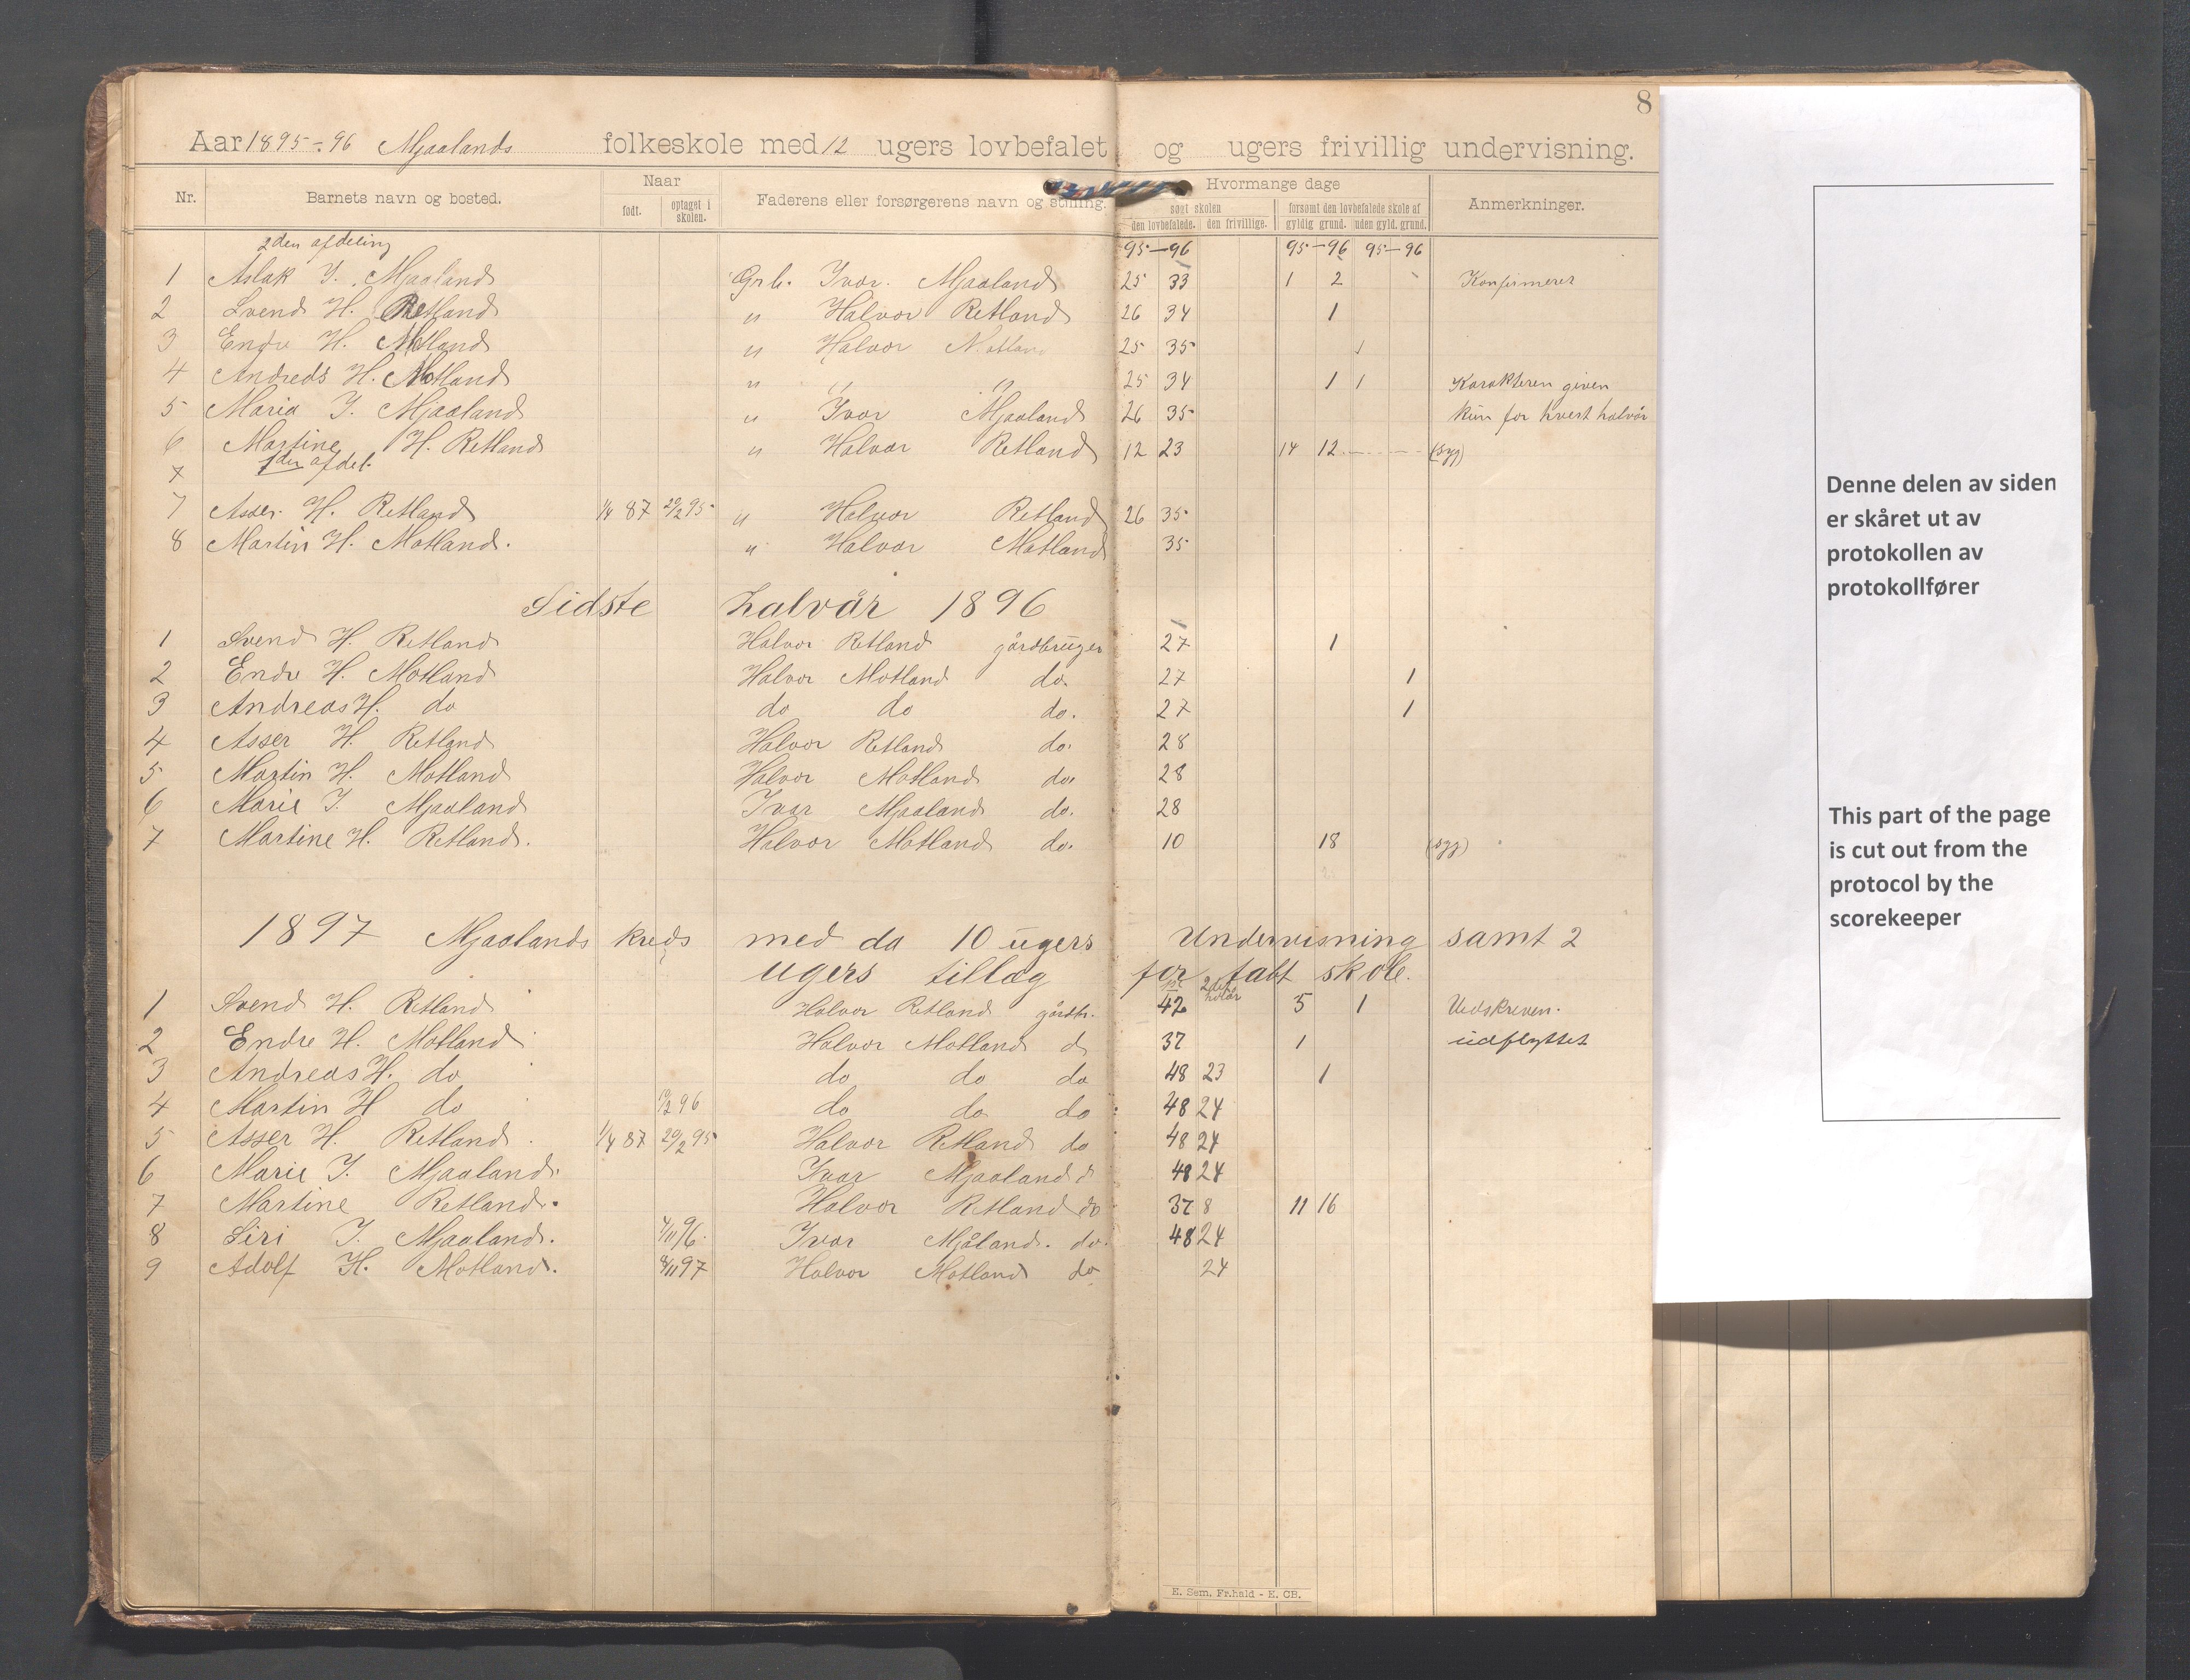 8
Aar 1895-96 Mjaalands folkeskole med 12 ugers lovbefalet og ugers frivillig undervisning.
Nr. Barnets navn og bosted. Naar født. optaget i skolen. Faderens eller forsørgerens navn og stilling. Hvormange dage søgt skolen den lovbefalede. den frivillige. forsømt den lovbefalede skole af gyldig grund. uden gyld. grund. Anmerkninger.
2den afdeling 95-96 95-96 95-96
1 Aslak I. Mjaaland Grb. Ivar Mjaaland 25 33 1 2 Konfirmeret
2 Svend H. Retland " Halvor Retland 26 34 1
3 Endre H. Motland " Halvor Motland 25 35 1
4 Andreas H. Motland " " " 25 34 1 1 Karakteren given
5 Maria I. Mjaaland " Ivar Mjaaland 26 35 kun for hvert halvår
6 Martine H. Retland " Halvor Retland 12 23 14 12 (syg)
7 1den afdel.
7 Asser H. Retland 1/4 87 20/2 95 " Halvor Retland 26 35
8 Martin H. Motland. " Halvor Motland 35
Sidste halvår 1896
1 Svend H. Retland Halvor Retland gårdbruger 27 1
2 Endre H. Motland Halvor Motland do. 27 1
3 Andreas H. do do do do. 27 1
4 Asser H. Retland Halvor Retland do. 28
5 Martin H. Motland Halvor Motland do. 28
6 Marie I. Mjaaland Ivar Mjaaland do. 28
7 Martine H. Retland. Halvor Motland do. 10 18 (syg)
1897 Mjaalands kreds med da 10 ugers Undervisning samt 2
ugers tillæg for tabt skole.
2det halvår
1 Svend H. Retland Halvor Retland gårdbr. 42 5 1 Udskreven.
2 Endre H. Motland Halvor Motland d 37 1 udflyttet
3 Andreas H. do do do do 48 23 1
4 Martin H do 19/2 96 do do do 48 24
5 Asser H. Retland 1/4 87 20/2 95 Halvor Retland do 48 24
6 Marie I. Mjaaland. Ivar Mjaaland d 48 24
7 Martine Retland. Halvor Retland do 37 8 11 16
8 Siri I. Mjaaland. 4/11 96. Ivar Mjåland. do. 48 24
9 Adolf H. Motland. 8/11 97 Halvor Motland do 24
E. Sem, Fr.hald - E. CB.
Denne delen av siden
er skåret ut av
protokollen av
protokollfører
This part of the page
is cut out from the
protocol by the
scorekeeper